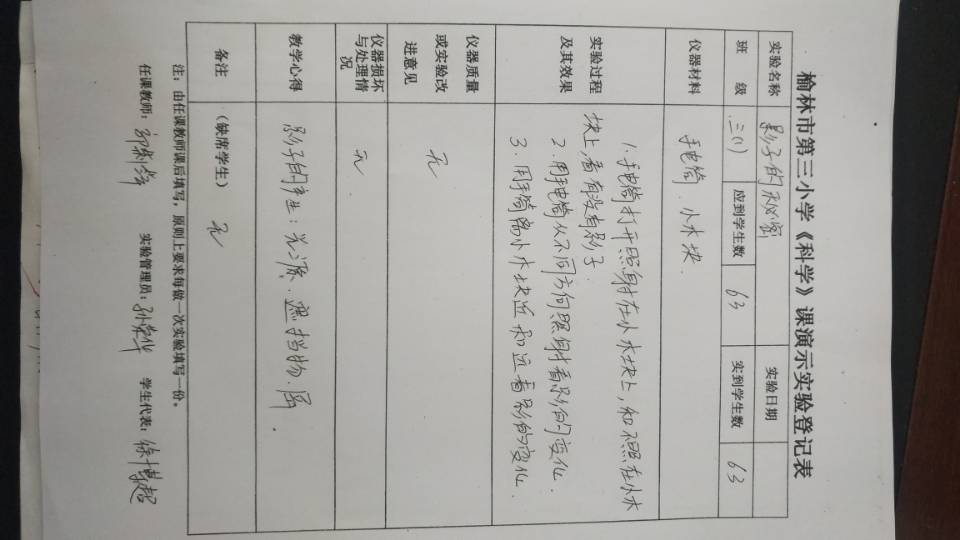 榆林市第三小学《科学》课演示实验登记表
实验名称 影子的秘密 实验日期
班 级 三(1) 应到学生数 63 实到学生数 63
仪器材料 手电筒 小木块.
实验过程
及其效果
1.手电筒打开照射在小木块上,和不照在小木
块上,看有没有影子.
2.用手电筒从不同方向照射看影的变化.
3.用手筒离小木块近和远看影的变化.
仪器质量
或实验改
进意见
无
仪器损坏
与处理情
况
无
教学心得 影子的产生:光源.遮挡物.屏
备注 (缺席学生) 无
注:由任课教师课后填写,原则上要求每做一次实验填写一份。
任课教师: 实验管理员:孙荣华 学生代表:徐博超